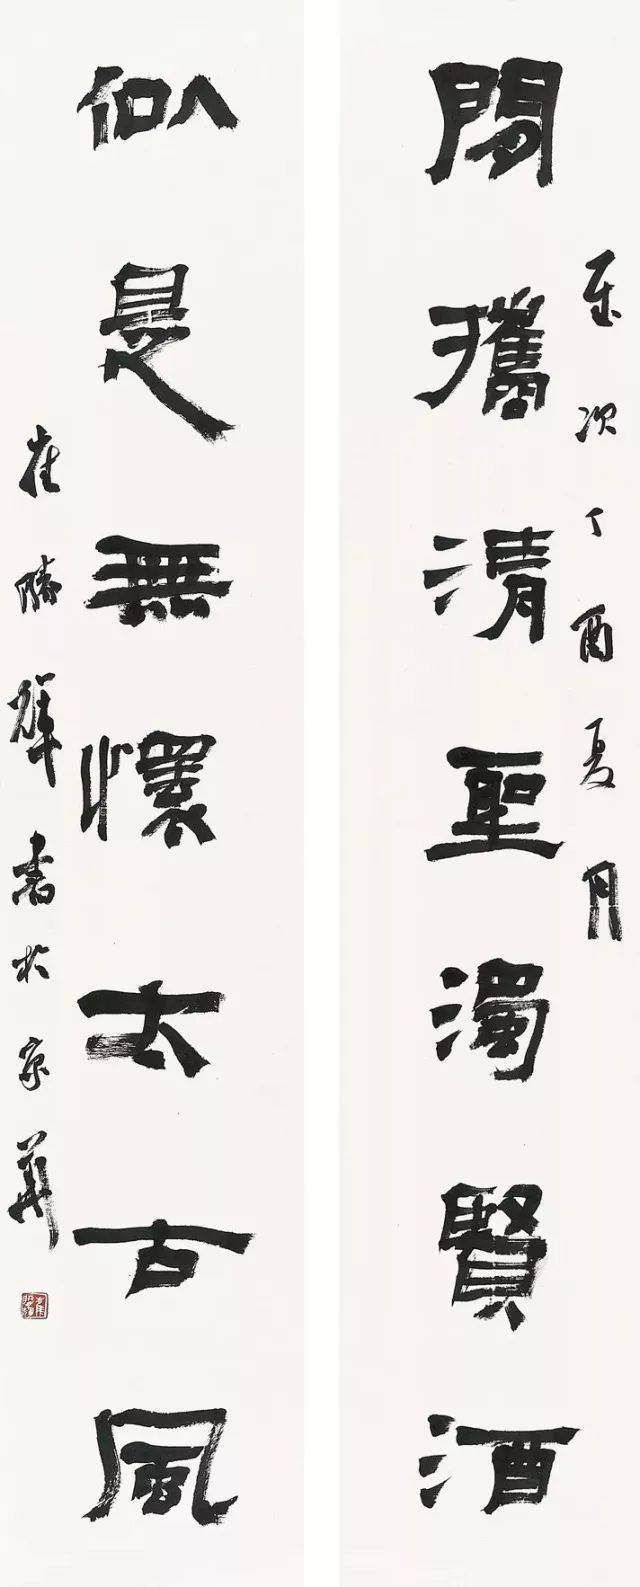 歲次丁酉夏月
閒攜清聖濁賢酒
似是無懷太古風
崔勝輝書於京華